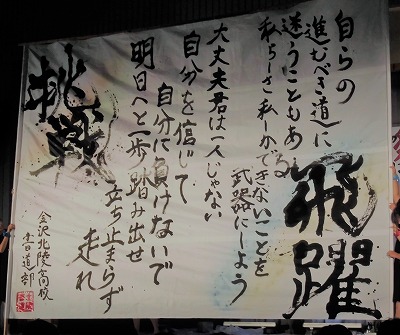 自らの
進むべき道に
迷うこともある
私らしさ私しかできないことを
武器にしよう
飛躍
大丈夫君は一人じゃない
自分を信じて
自分に負けないで
明日へと一歩踏み出せ
立ち止まらず
走れ
挑戦
金沢北陵高校
書道部